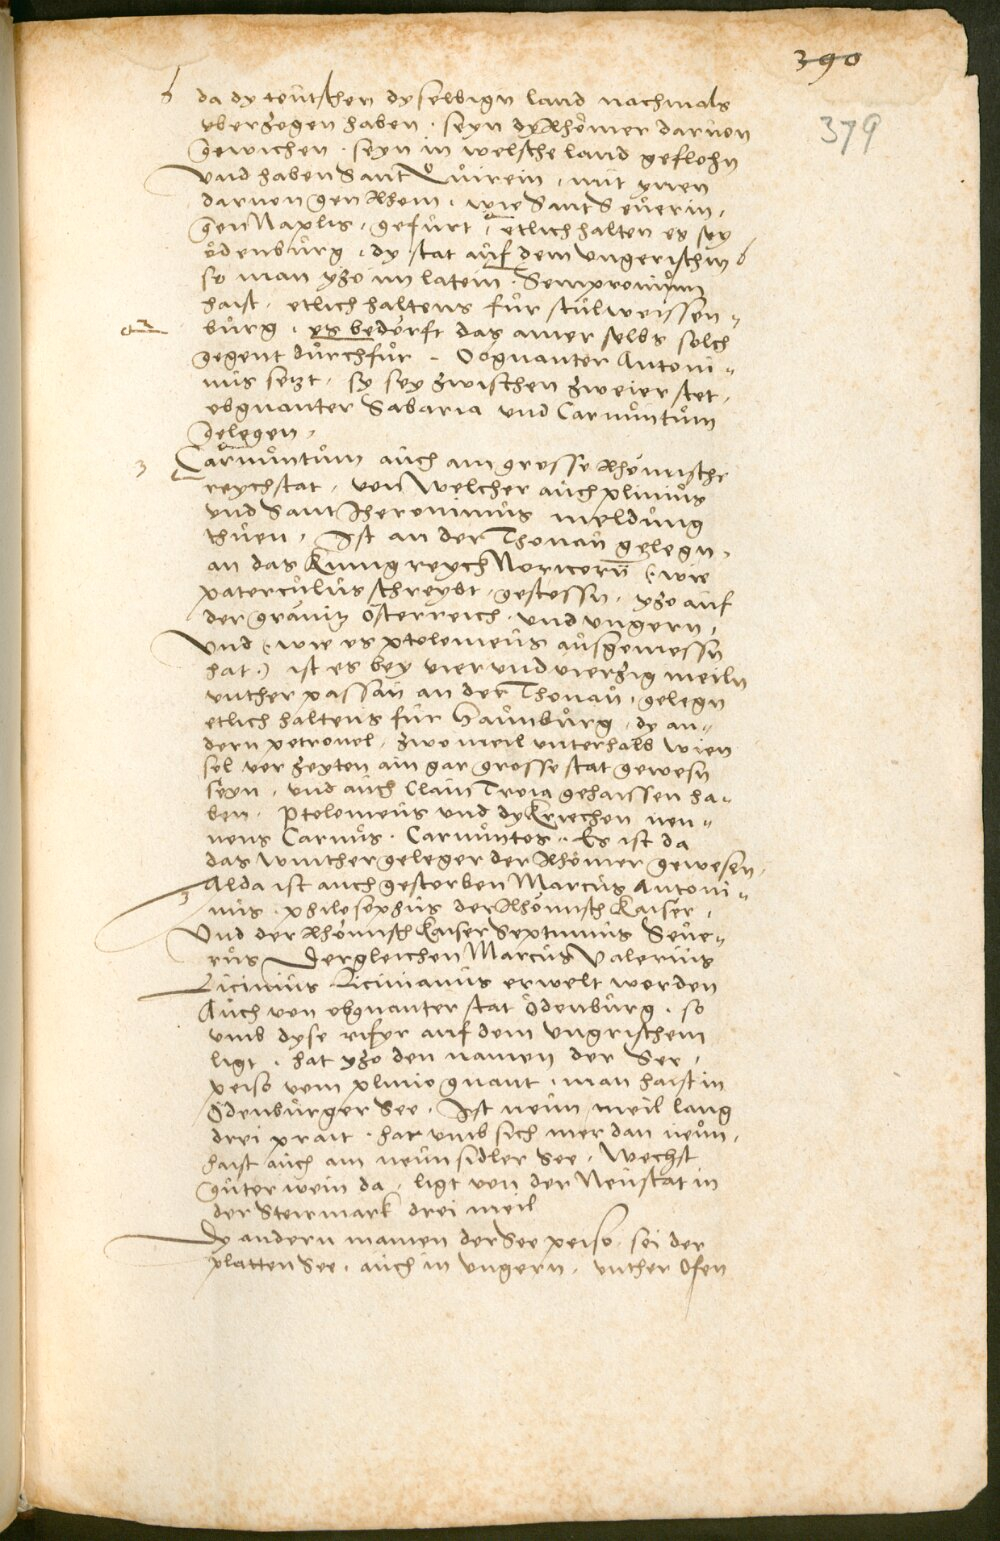 390
379
da dy teütschen dyselbign land nachmals
vberzogen haben . seyn dy Rhömer darvon
gewichen . seyn in welsche land geflohn
Vnd haben Sant Quirein , mit ynen
darvon gen Rhom , wie Sant Seuerin ,
gen Naplis , gefürt , etlich halten es sey
ödenbürg , dy stat auf dem vngerischen
so man yzo im latein Sempronium
haist . etlich haltens für stülweissen-
bürg , es bedörft das ainer selbs solch
gegent durchfür . Obgnanter Antoni-
nus setzt , sy sey zwischen zweier stet ,
obgnanter Sabaria vnd Carnuntum
gelegen .
3 Carnuntum auch ain grosse Rhömische
reychstat , von welcher auch plinius
vnd Sant Iheronimus meldung
thuen , Ist an der Thonau gelegn ,
an das Künigreych Noricum (wie
paterculus schreybt , gestossn , yzo auf
der gränitz Osterreich vnd vngern ,
Vnd (wie es ptolemeus ausgemessn
hat .) ist es bey vier vnd vierzig meiln
vnther passau an der Thonau , gelegn
etlich haltens für Haimburg , dy an-
dern petronel , zwo meil vnterhalb wien
sol vor zeyten ain gar grosse stat gewesn
seyn , vnd auch Clain Troia gehaissen ha-
ben . Ptolemeus vnd dy Kriechen nen-
nens Carnus . Carnuntos . Es ist da
das winthergeleger der Rhömer gewesen .
Alda ist auch gestorben Marcus Antoni-
nus . philosophus der Rhömisch Kaiser ,
Vnd der Rhömisch Kaiser Septimius Seue-
rus Dergleichen Marcus Valerius
Licinius Licinianus erwelt worden
Auch von obgnanter stat Ödenburg , so
vmb dyse rifyr auf dem vngrischem
ligt , hat yzo den namen der See ,
peiso vom plinio gnant , man haist in
Ödenburger See . Ist neün meil lang
drei prait . hat vmb sich mer dan neün ,
haist auch am neünsidler See , Wechst
guter wein da , ligt von der Neustat in
der Steirmark drei meil
Dy andern mainen der See peiso sei der
platten See , auch in vngern , vnther Ofen